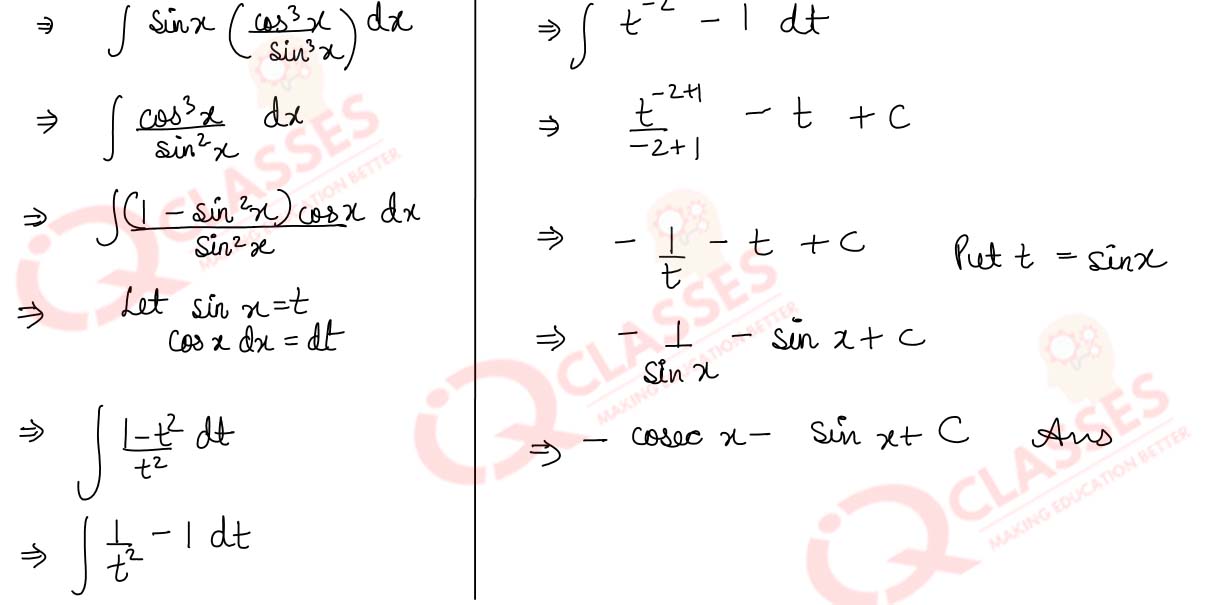 ⇒ ∫ sinx (cos³x / sin³x) dx
⇒ ∫ cos³x / sin²x dx
⇒ ∫ (1 - sin²x) cosx / sin²x dx
⇒ Let sin x = t
cos x dx = dt
⇒ ∫ 1-t² / t² dt
⇒ ∫ 1 / t² - 1 dt
⇒ ∫ t⁻² - 1 dt
⇒ t⁻²⁺¹ / -2+1 - t + C
⇒ - 1 / t - t + C Put t = sinx
⇒ - 1 / sin x - sin x + C
⇒ - cosec x - sin x + C Ans
IQ CLASSES
MAKING EDUCATION BETTER
IQ CLASSES
MAKING EDUCATION BETTER
IQ CLASSES
MAKING EDUCATION BETTER